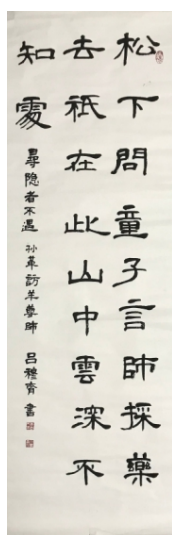 松下問童子言師採藥
去祇在此山中雲深不
知處
尋隐者不遇 孙革訪羊尊師 吕穆青書